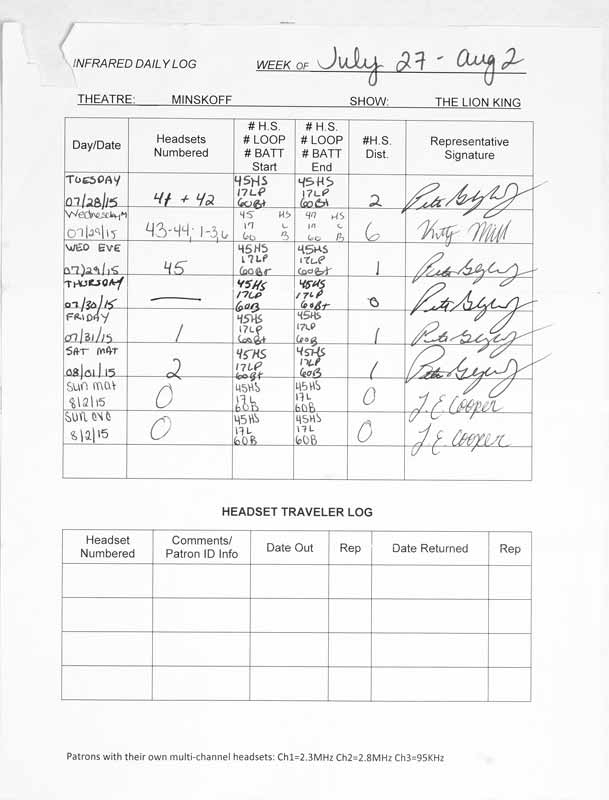 INFRARED DAILY LOG WEEK OF July 27 - Aug 2
THEATRE: MINSKOFF SHOW: THE LION KING
Day/Date Headsets Numbered # H.S. # LOOP # BATT Start # H.S. # LOOP # BATT End #H.S. Dist. Representative Signature
TUESDAY 07/28/15 41 + 42 45HS 17LP 60Bt 45HS 17LP 60Bt 2
Wednesday M 07/29/15 43-44; 1-3,6 45 HS 17 L 60 B 45 HS 17 L 60 B 6 Kitty
WED EVE 07/29/15 45 45HS 17LP 60Bt 45HS 17LP 60Bt 1
THURSDAY 07/30/15 — 45HS 17LP 60B 45HS 17LP 60Bt 0
FRIDAY 07/31/15 1 45HS 17LP 60Bt 45HS 17LP 60B 1
SAT MAT 08/01/15 2 45HS 17LP 60Bt 45HS 17LP 60Bt 1
Sun mat 8/2/15 0 45HS 17L 60B 45HS 17L 60B 0 J.E. Cooper
Sun eve 8/2/15 0 45HS 17L 60B 45HS 17L 60B 0 J.E. Cooper
HEADSET TRAVELER LOG
Headset Numbered Comments/ Patron ID Info Date Out Rep Date Returned Rep
Patrons with their own multi-channel headsets: Ch1=2.3MHz Ch2=2.8MHz Ch3=95KHz